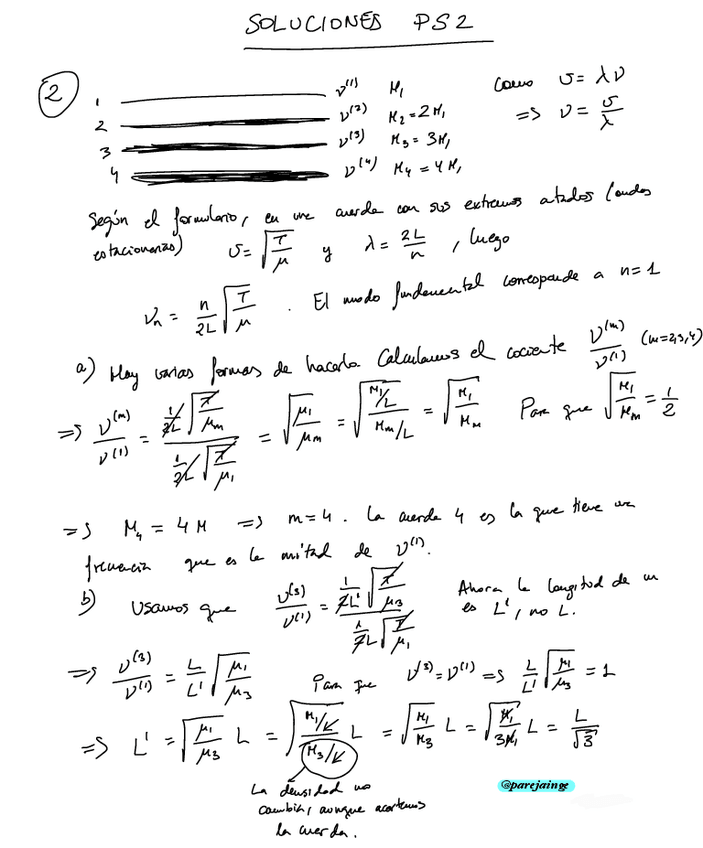 SOLUCIONES PS2
2
1 ν⁽¹⁾ M₁ Como v = λν
2 ν⁽²⁾ M₂ = 2M₁ => ν = v/λ
3 ν⁽³⁾ M₃ = 3M₁
4 ν⁽⁴⁾ M₄ = 4M₁
Según el formulario, en una cuerda con sus extremos atados (ondas
estacionarias) v = √(T/μ) y λ = 2L/n , luego
νₙ = n/2L √(T/μ) . El modo fundamental corresponde a n=1
a) Hay varias formas de hacerlo. Calculamos el cociente ν⁽ᵐ⁾/ν⁽¹⁾ (m=2,3,4)
=> ν⁽ᵐ⁾/ν⁽¹⁾ = (1/2L √(T/μₘ))/(1/2L √(T/μ₁)) = √(μ₁/μₘ) = √((M₁/L)/(Mₘ/L)) = √(M₁/Mₘ) Para que √(M₁/Mₘ) = 1/2
=> M₄ = 4M => m=4. La cuerda 4 es la que tiene una
frecuencia que es la mitad de ν⁽¹⁾.
b) Usamos que ν⁽³⁾/ν⁽¹⁾ = (1/2L' √(T/μ₃))/(1/2L √(T/μ₁)) Ahora la longitud de
es L', no L.
=> ν⁽³⁾/ν⁽¹⁾ = L/L' √(μ₁/μ₃) Para que ν⁽³⁾ = ν⁽¹⁾ => L/L' √(μ₁/μ₃) = 1
=> L' = √(μ₁/μ₃) L = √((M₁/L)/(M₃/L)) L = √(M₁/M₃) L = √(M₁/3M₁) L = L/√3
La densidad no
cambia, aunque acortemos
la cuerda.
@parejainge